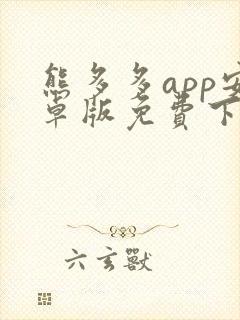 熊多多app安
卓版免費下
六玄獸